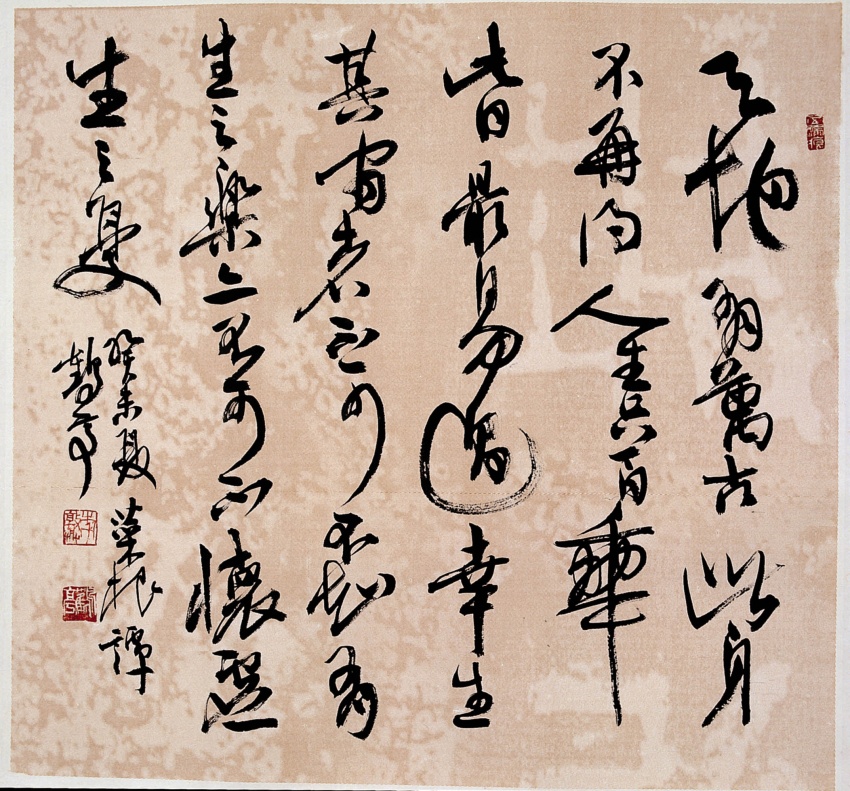 天地有萬古此身
不再得人生只百年
此日最易過幸生
其間者不可不知有
生之樂亦不可不懷虛
生之憂
癸未夏菜根譚
鶴亭